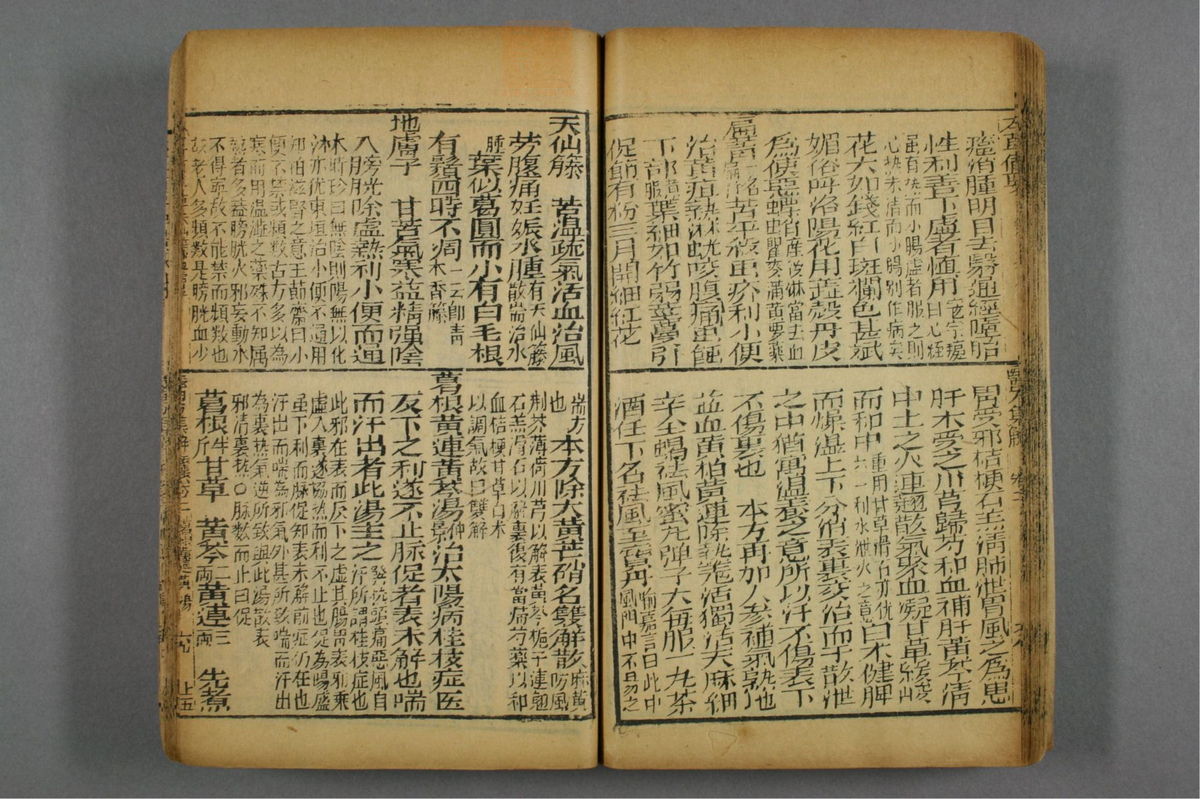 瘡消腫明目去翳通經墮胎
性利善下虛者慎用寇宗奭曰心經
雖有熱而小腸虛者服之則
心熱未清而小腸別作病矣
花大如錢紅白斑斕色甚斌
媚俗呼洛陽花用蕊殼丹皮
為使惡螵蛸產後淋當去血瞿麥滿黄要藥
萹蓄一名扁竹苦平殺虫疥利小便
治黃疸熱淋蚘咬腹痛虫蝕
下部煮服葉細如竹弱莖蔓引
促節有粉三月開細紅花
胃受邪桔梗石羔清肺泄胃風之為患
肝木受之川芎歸芍和血補肝黃芩清
中上之火連翹散氣聚血凝甘草緩峻
而和中重用甘草滑石亦猶六一利水泄火之意白木健脾
而燥濕上下分消表裏交治而于散泄
之中猶寓溫養之意所以汗不傷表下
不傷裏也 本方再加人參補氣熟地
益血黃柏黃連除熱羗活獨活天麻細
辛全蝎祛風蜜丸弹子大每服一丸茶
酒任下名祛風至寶丹喻嘉言曰此中風門中不易之
天仙籐 苦溫疏氣活血治風
勞腹痛妊娠水腫有天仙籐散耑治水
腫葉似葛圓而小有白毛根
有鬚四時不凋一云即青木香籐
地膚子 甘苦氣寒益精強陰
入膀光除虛熱利小便而通
淋時珍曰無陰則陽無以化
亦猶東垣治小便不通用
知柏滋腎之意王節齋曰小
便不禁或頻數古方多以為
寒而用溫澁之藥殊不知属
熱者多盖膀胱火邪妄動水
不得寧故不能禁而頻數也
故老人多頻數是膀胱血少
耑方
也 本方除大黃芒硝名雙解散麻黃防風
荆芥薄荷川芎以解表黃芩梔子連翹
石羔滑石以解裏復有當歸芍藥以和
血桔梗甘草白木
以調氣故曰雙解
葛根黃連黃芩湯仲景治太陽病桂枝症医
反下之利遂不止脉促者表未解也喘
而汗出者此湯主之發热頭痛惡風自汗所謂桂枝症也
此邪在表而反下之虛其腸胃表邪乘
虛入裏遂協热而利不止也促為陽盛
虽下利而脉促知表未解前症仍在也
汗出而喘為邪氣外甚所致喘而汗出
為裏热氣逆所致與此湯散表
邪清裏热〇脉數而止曰促
葛根半斤甘草 黄芩二兩黄連三兩 先煮